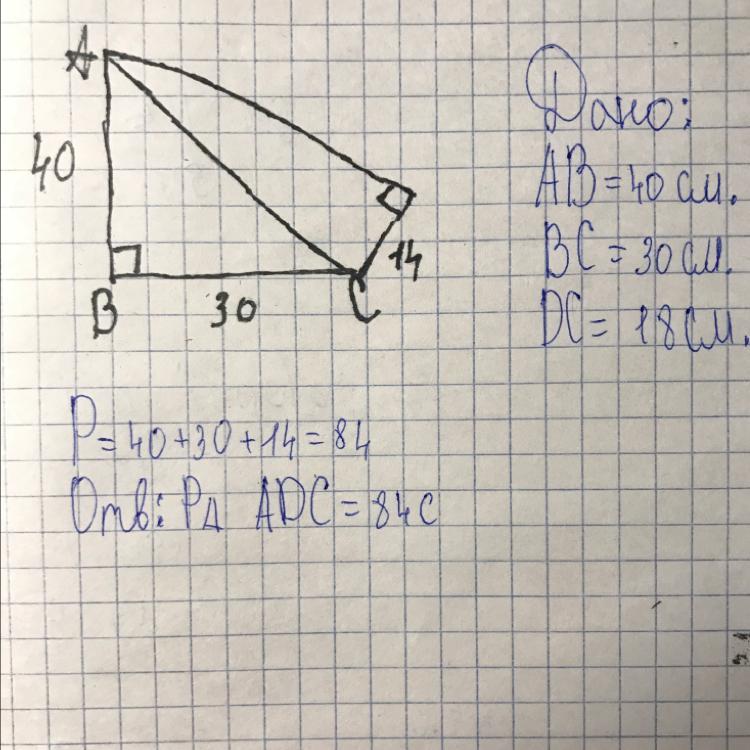 A
40
B
30
C
14
Дано:
AB = 40 см.
BC = 30 см.
DC = 18 см.
P = 40 + 30 + 14 = 84
Отв: PΔ ADC = 84 с